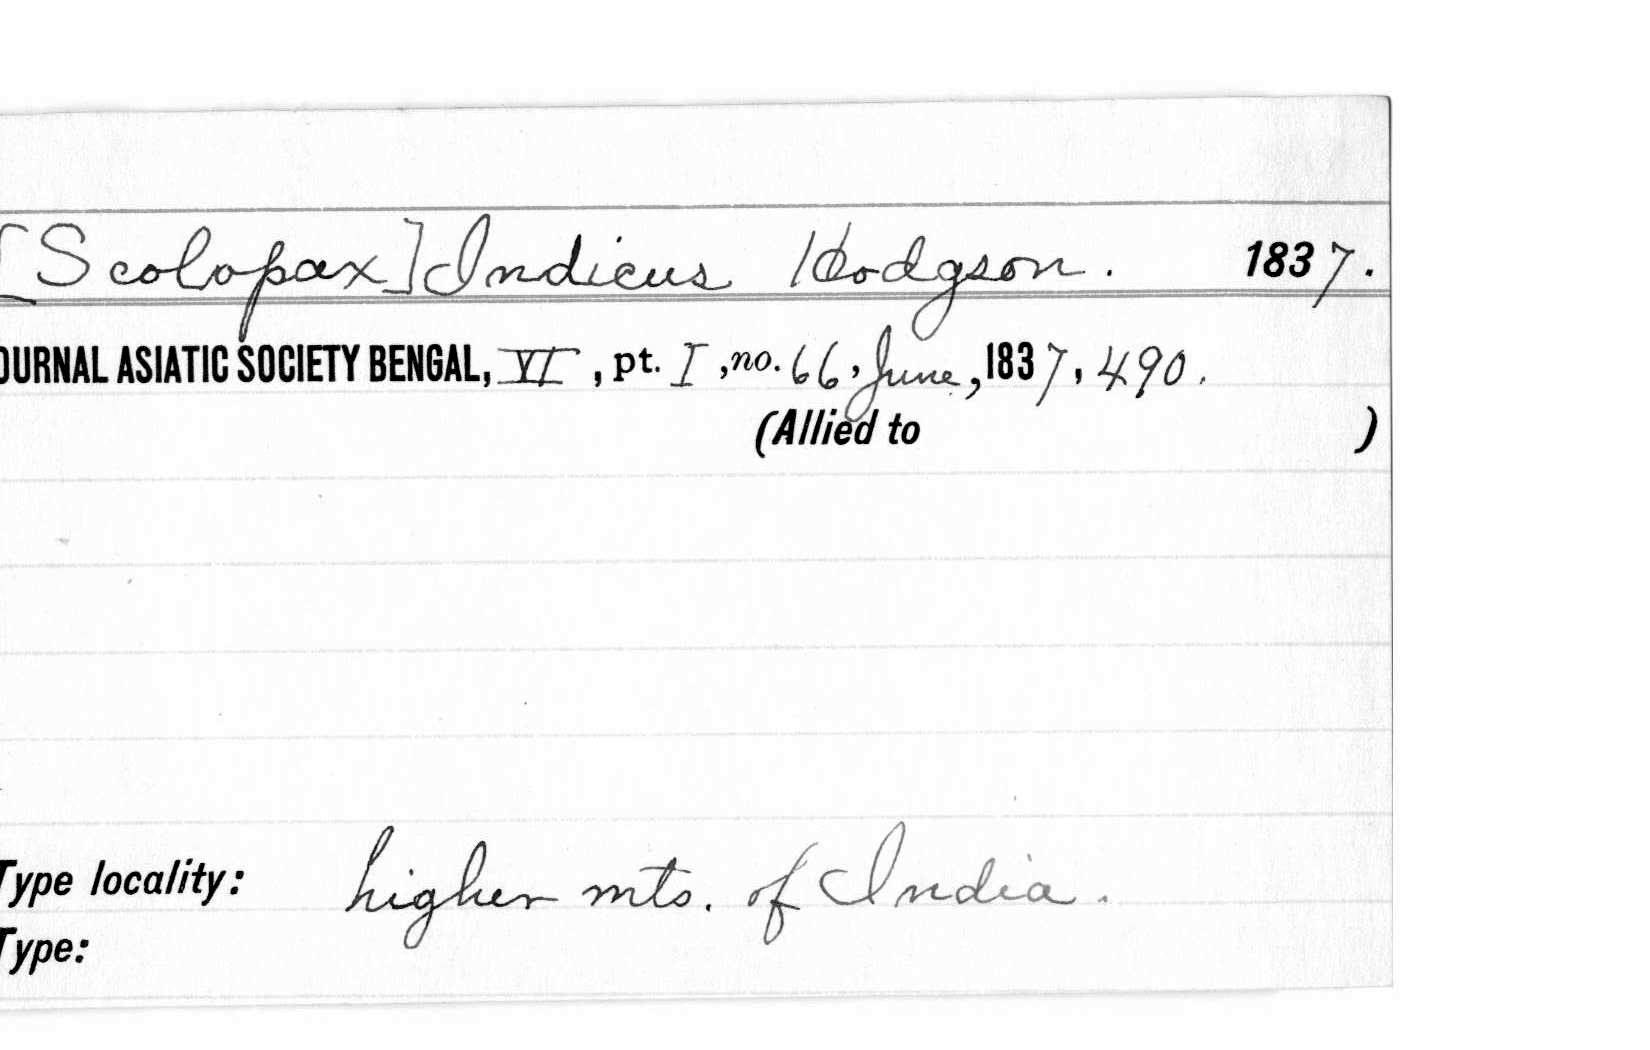 [Scolopax] Indicus Hodgson. 1837.
OURNAL ASIATIC SOCIETY BENGAL, VI, pt. I, no. 66, June, 1837, 490.
(Allied to )
Type locality: higher mts. of India.
Type: